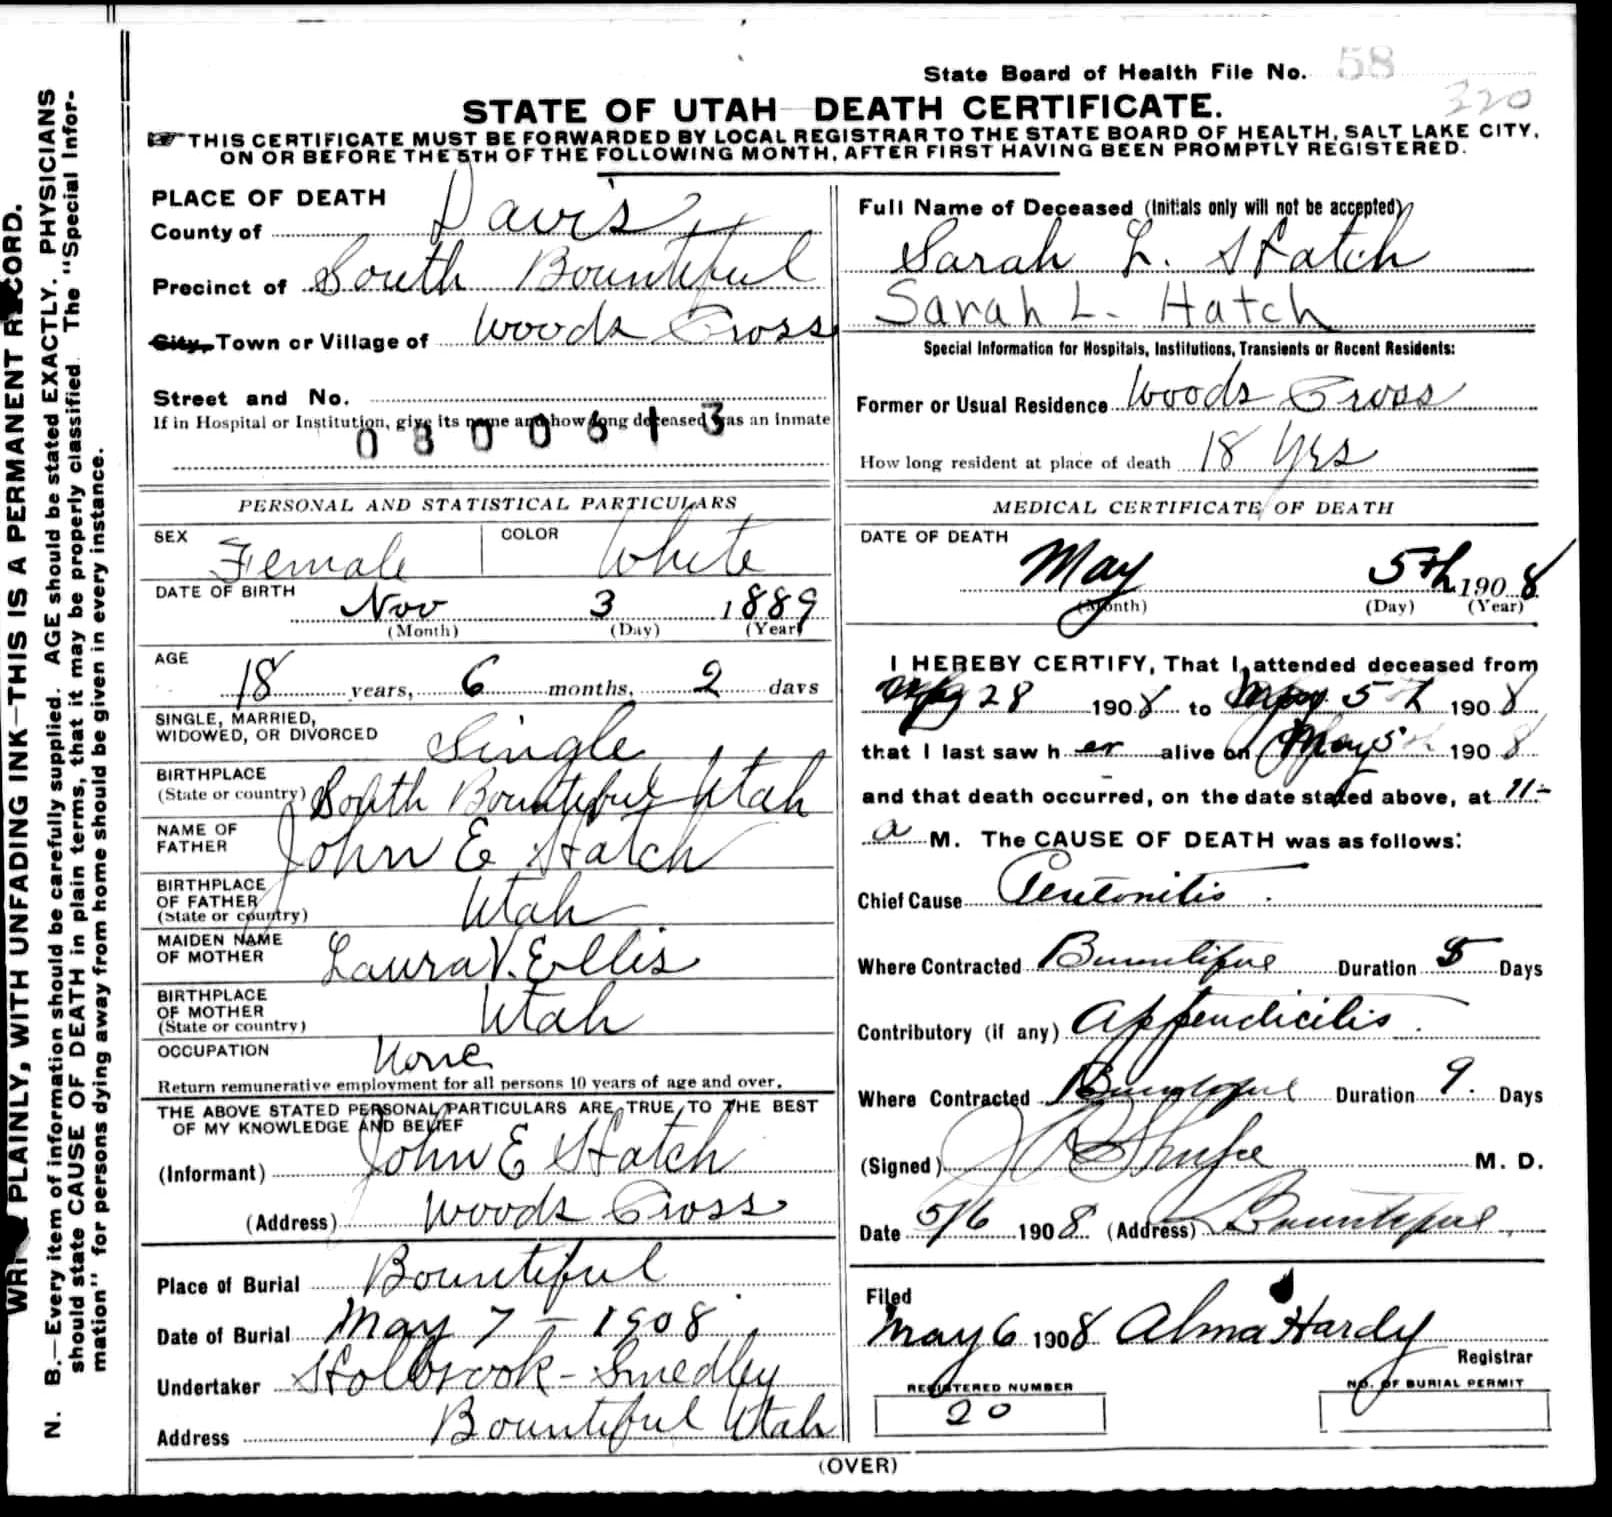 State Board of Health File No. 58
320
STATE OF UTAH—DEATH CERTIFICATE.
☞ THIS CERTIFICATE MUST BE FORWARDED BY LOCAL REGISTRAR TO THE STATE BOARD OF HEALTH, SALT LAKE CITY,
ON OR BEFORE THE 5TH OF THE FOLLOWING MONTH, AFTER FIRST HAVING BEEN PROMPTLY REGISTERED.
PLACE OF DEATH
County of Davis
Precinct of South Bountiful
City, Town or Village of Woods Cross
Street and No.
If in Hospital or Institution, give its name and how long deceased was an inmate
0800613
PERSONAL AND STATISTICAL PARTICULARS
SEX Female COLOR White
DATE OF BIRTH
Nov 3 1889
(Month) (Day) (Year)
AGE
18 years, 6 months, 2 days
SINGLE, MARRIED,
WIDOWED, OR DIVORCED Single
BIRTHPLACE
(State or country) South Bountiful Utah
NAME OF
FATHER John E Hatch
BIRTHPLACE
OF FATHER
(State or country) Utah
MAIDEN NAME
OF MOTHER Laura V. Ellis
BIRTHPLACE
OF MOTHER
(State or country) Utah
OCCUPATION None
Return remunerative employment for all persons 10 years of age and over.
THE ABOVE STATED PERSONAL PARTICULARS ARE TRUE TO THE BEST
OF MY KNOWLEDGE AND BELIEF
(Informant) John E Hatch
(Address) Woods Cross
Place of Burial Bountiful
Date of Burial May 7 – 1908
Undertaker Holbrook – Smedley
Address Bountiful Utah
Full Name of Deceased (Initials only will not be accepted)
Sarah L. Hatch
Sarah L. Hatch
Special Information for Hospitals, Institutions, Transients or Recent Residents:
Former or Usual Residence Woods Cross
How long resident at place of death 18 yrs
MEDICAL CERTIFICATE OF DEATH
DATE OF DEATH
May 5th 1908
(Month) (Day) (Year)
I HEREBY CERTIFY, That I attended deceased from
28 1908 to May 5th 1908
that I last saw her alive on May 5th 1908
and that death occurred, on the date stated above, at 11-
a M. The CAUSE OF DEATH was as follows:
Chief Cause Peritonitis
Where Contracted Bountiful Duration 5 Days
Contributory (if any) Appendicitis
Where Contracted Bountiful Duration 9. Days
(Signed) M. D.
Date 5/6 1908 (Address) Bountiful
Filed
May 6 1908 Alma Hardy
Registrar
REGISTERED NUMBER
20
NO. OF BURIAL PERMIT
(OVER)
PLAINLY, WITH UNFADING INK—THIS IS A PERMANENT RECORD.
N. B.—Every item of information should be carefully supplied. AGE should be stated EXACTLY. PHYSICIANS
should state CAUSE OF DEATH in plain terms, that it may be properly classified. The "Special Infor-
mation" for persons dying away from home should be given in every instance.